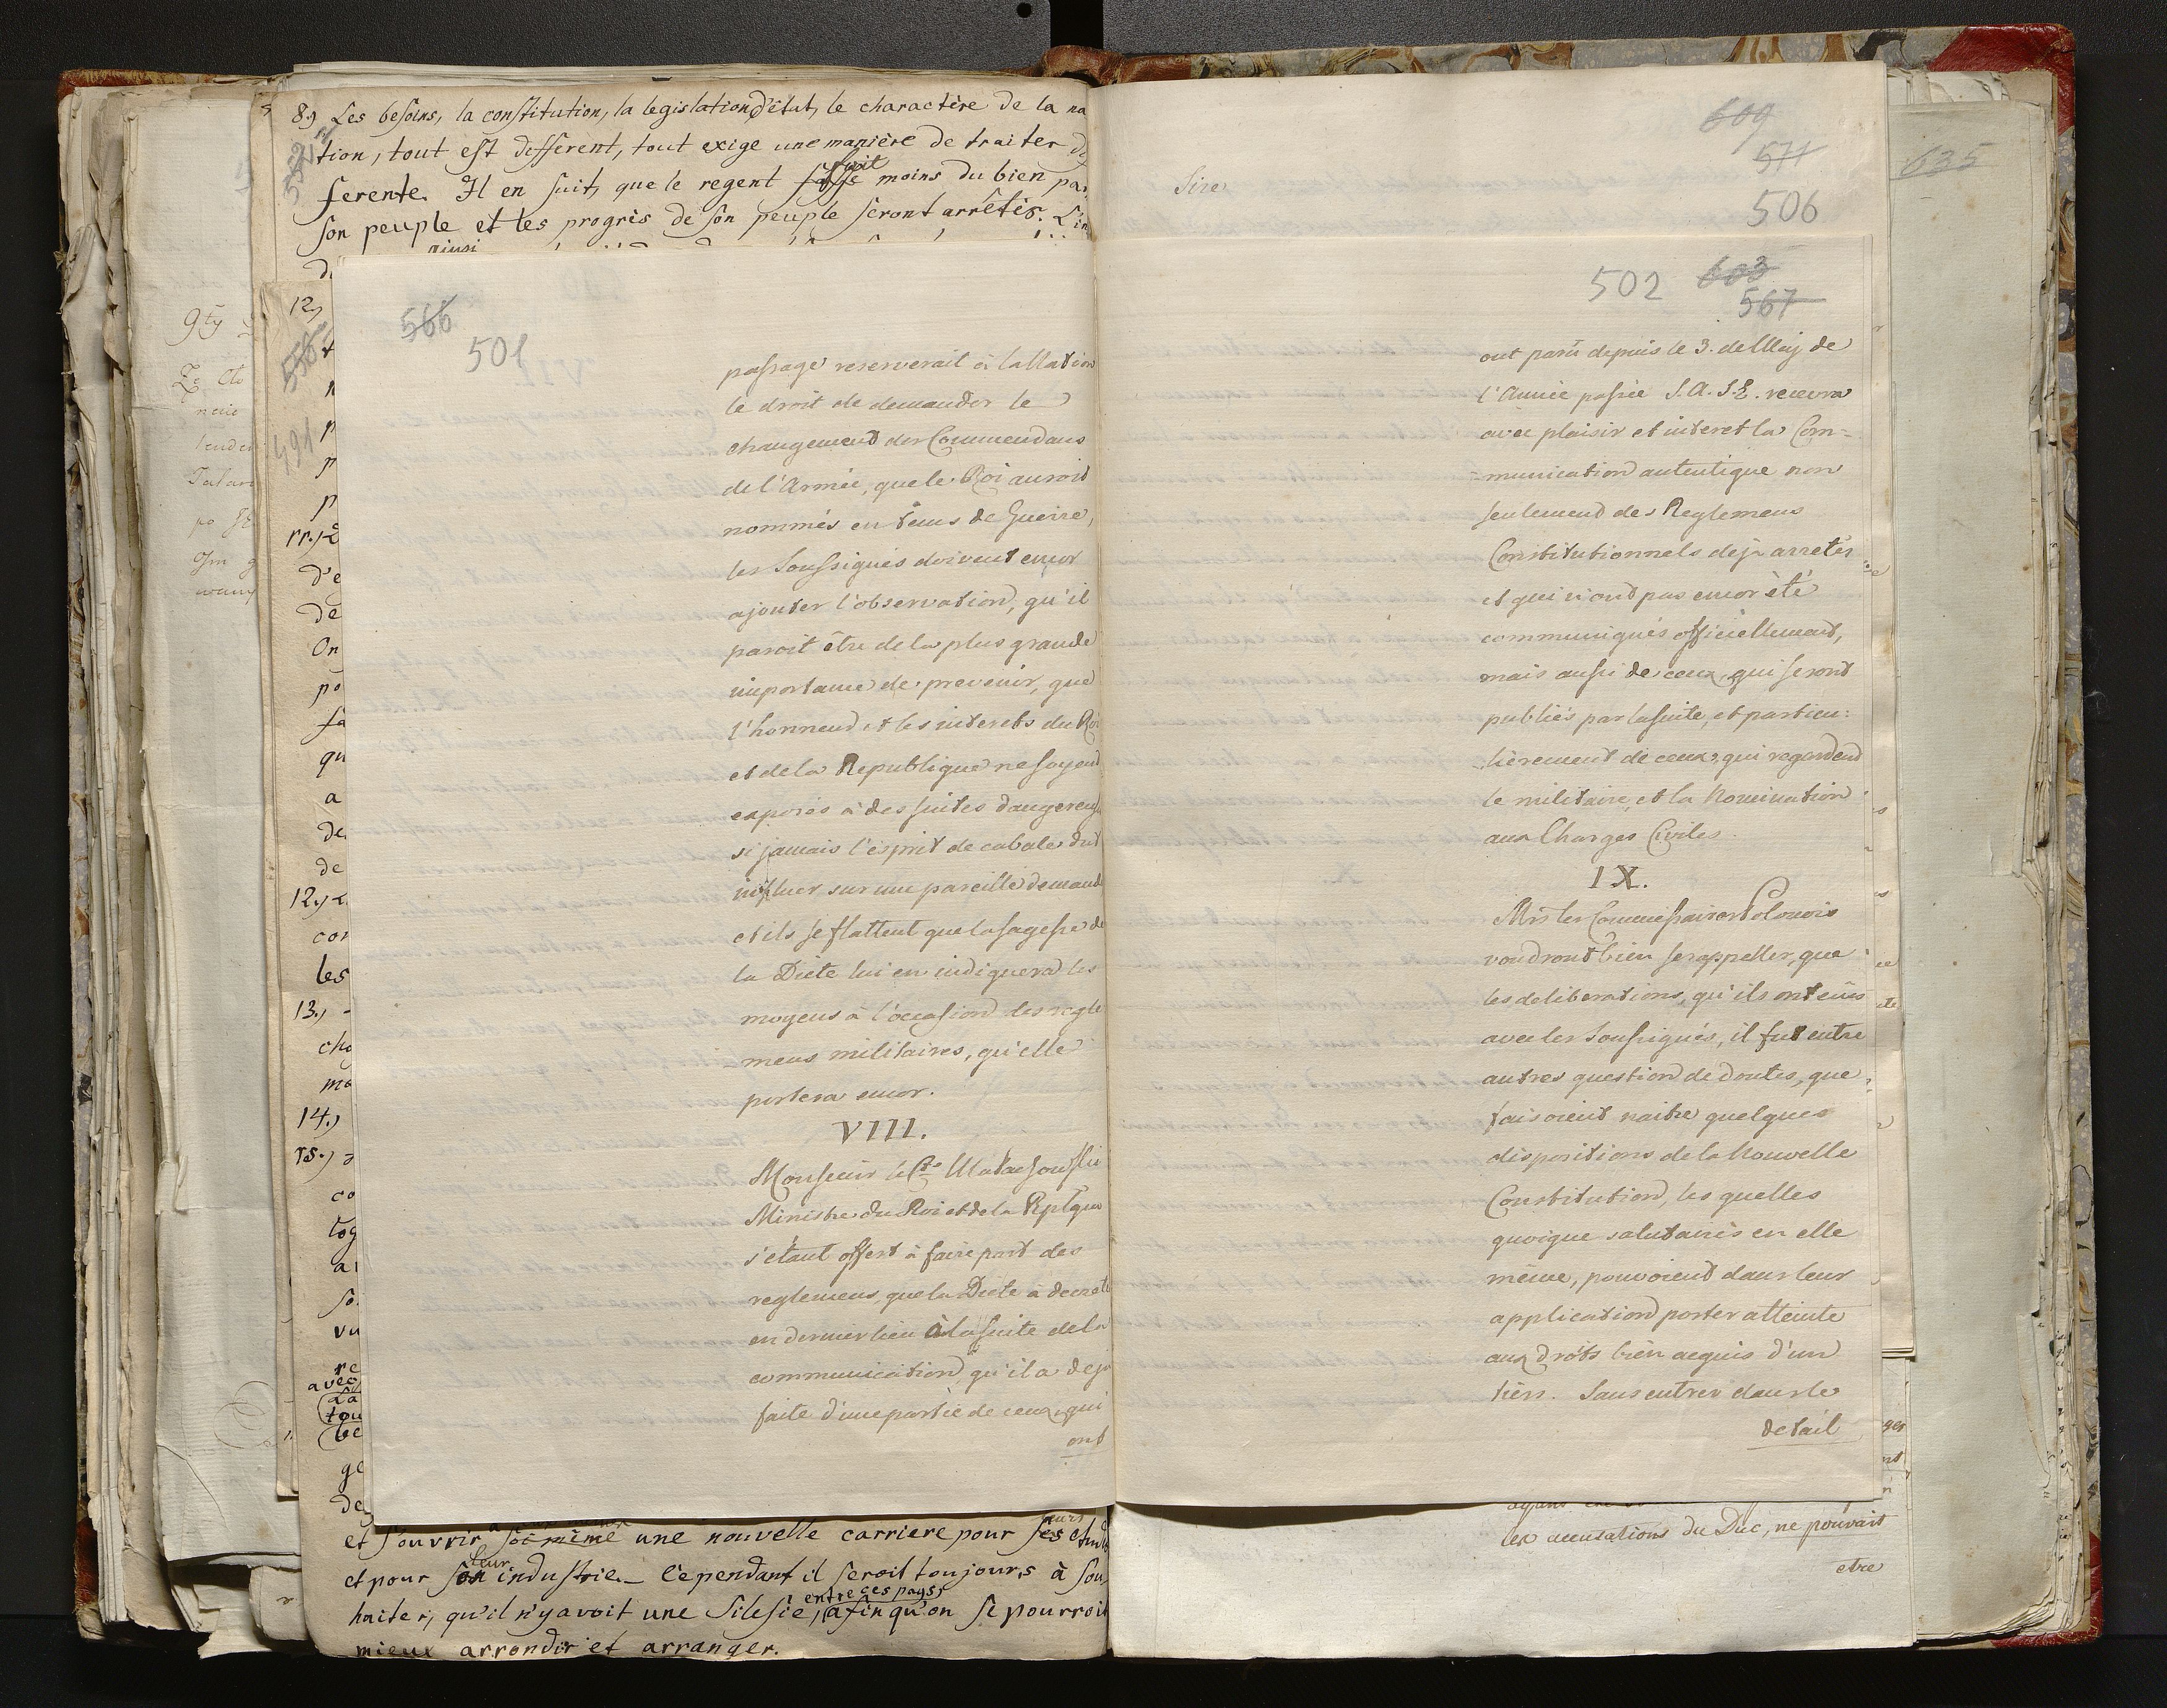 8.) Les besoins, la constitution, la legislation d'étut, le charactère de la na
tion, tout est different, tout exige une manière de traiter
ferente. Il en suit, que le regent fait moins du bien
son peuple et les progrès de son peuple seront arrêtés. L'in
ainsi
12)
491
566
501
passage reserverait à la Nation
le droit de demander le
changement des Commendans
de l'Armée, que le Roi auroit
nommés en tems de Guerre,
les Soussignés doivent encor
ajouter l'observation, qu'il
paroit être de la plus grande
importance de prevenir, que
l'honneur et les interets du Roi
et de la Republique ne soyent
exposés à des suites dangereuse
si jamais l'ésprit de cabale dut
influer sur une pareille demande
et ils se flattent que la sagesse de
la Diéte lui en indiquera les
moyens à l'occasion des regle
mens militaires, qu'elle
portera encor.
VIII.
Monsieur le Cte Malachowski
Ministre du Roi et de la Rplque
s'étant offert à faire part des
reglemens, que la Diete a decreté
en dernier lieu à la suite de la
communication, qu'il a deja
faite d'une partie de ceux, qui
ont
et s'ouvrir soi même une nouvelle carriere pour ses
leur
et pour son industrie. Cependant il seroit toujours à sou
entre ces pays,
haiter, qu'il n'y avoit une Silesie, afin qu'on se pourroit
mieux arrondir et arranger.
609
571
506
635
Sire
502 603
567
ont parû depuis le 3. de May de
l'Année passée S. A. S. E. recevra
avec plaisir et interet la Com=
=munication autentique non
seulement des Reglemens
Constitutionnels dejà arretés
et qui n'ont pas encor été
communiqués officiellement,
mais aussi de ceux, qui seront
publiés par la suite, et particu:
lièrement de ceux, qui regardend
le militaire, et la Nomination
aux Charges Civiles.
IX.
Mrs les Commissaires Polonois
voudront bien se rappeller, que
les deliberations, qu'ils ont eûes
avec les Soussignés, il fut entre
autres question de doutes, que
faisoient naitre quelques
dispositions de la Nouvelle
Constitution, les quelles
quoique salutaires en elle
même, pouvoient dans leur
application porter atteinte
aux droits bien acquis d'un
tiers. Sans entrer dans le
detail
les accusations du Duc, ne pouvait
etre